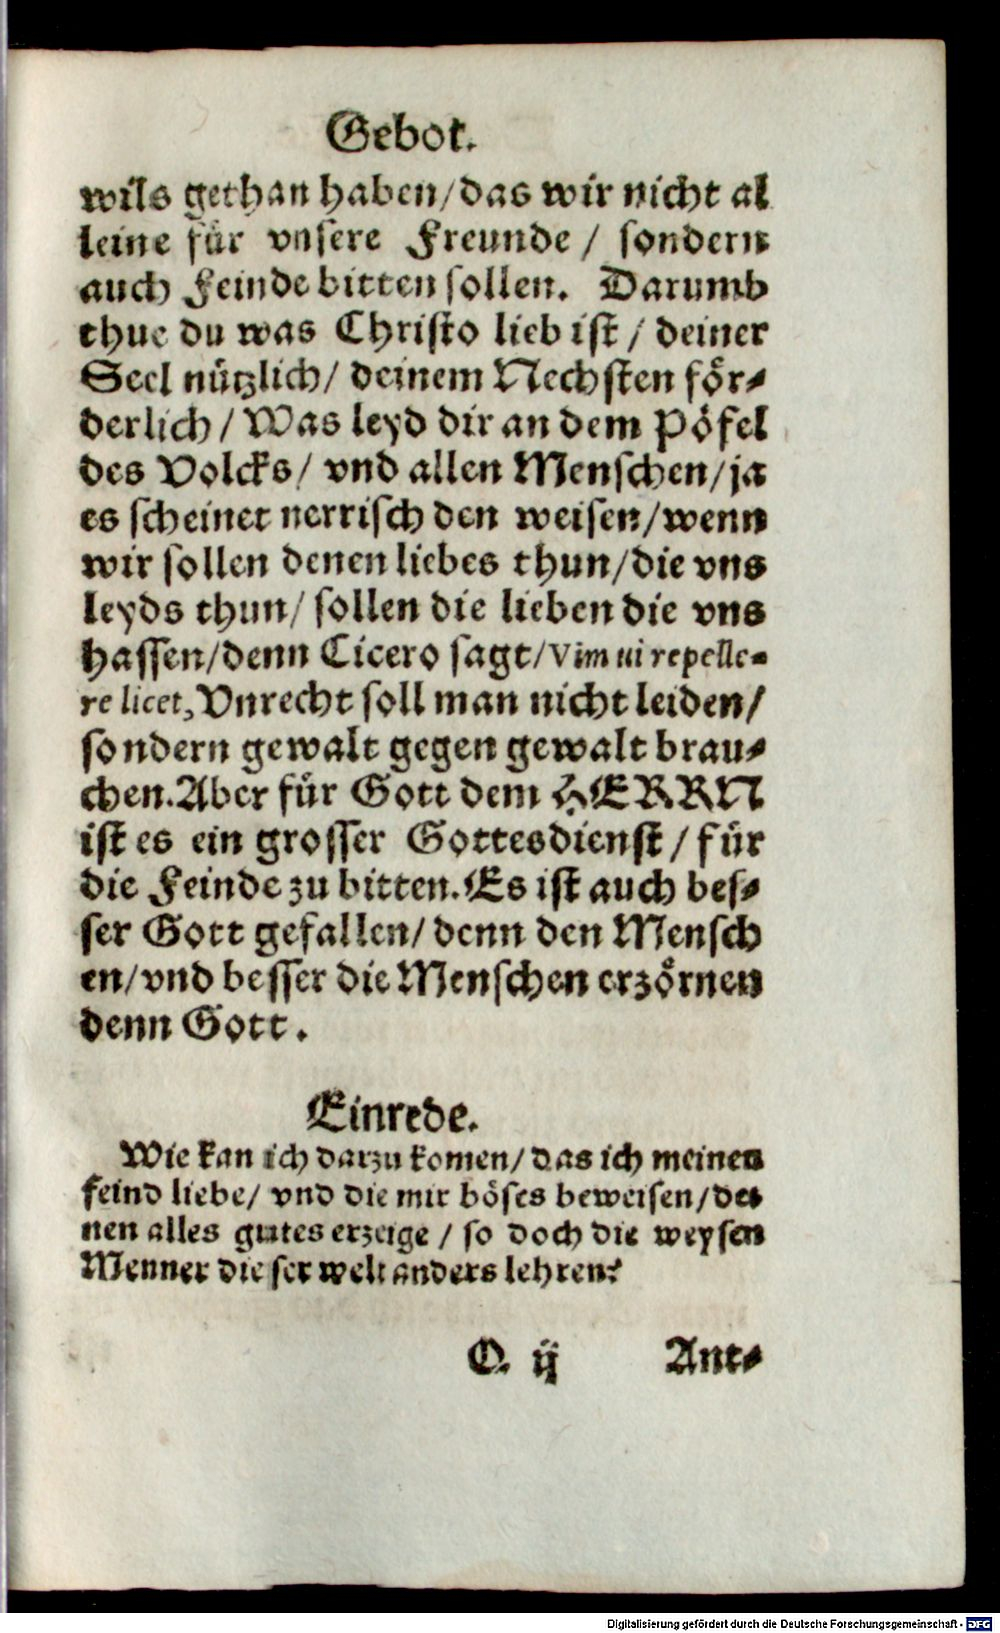 Gebot.
wils gethan haben/das wir nicht al
leine für vnsere Freunde / sondern
auch Feinde bitten sollen. Darumb
thue du was Christo lieb ist / deiner
Seel nützlich/ deinem Nechsten för-
derlich / Was leyd dir an dem Pöfel
des Volcks/ vnd allen Menschen/ja
es scheinet nerrisch den weisen/wenn
wir sollen denen liebes thun/die vns
leyds thun/ sollen die lieben die vns
hassen/denn Cicero sagt/Vim ui repelle-
re licet, Vnrecht soll man nicht leiden/
sondern gewalt gegen gewalt brau-
chen. Aber für Gott dem HERRN
ist es ein grosser Gottesdienst / für
die Feinde zu bitten. Es ist auch bes-
ser Gott gefallen/ denn den Mensch
en/vnd besser die Menschen erzörnen
denn Gott.
Einrede.
Wie kan ich darzu komen/ das ich meinen
feind liebe/ vnd die mir böses beweisen/de-
nen alles gutes erzeige / so doch die weysen
Menner dieser welt anders lehren?
O. ij Ant-
Digitalisierung gefördert durch die Deutsche Forschungsgemeinschaft - DFG